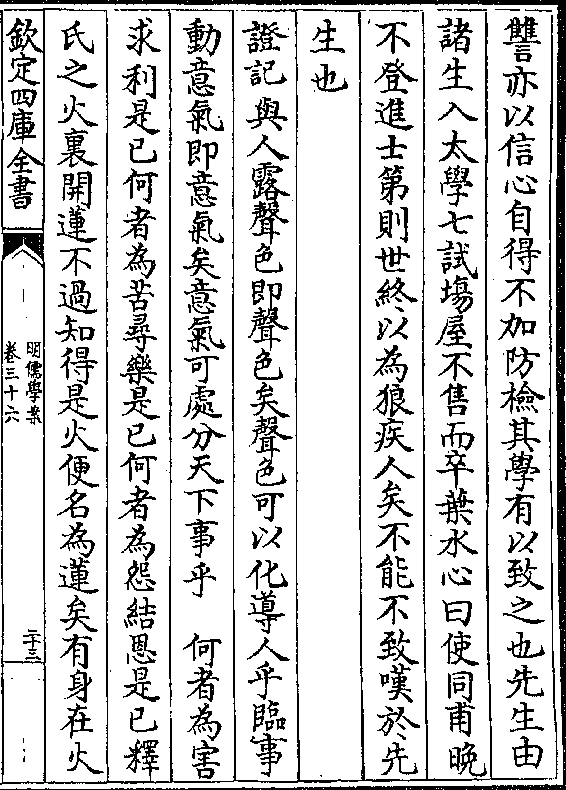 讐亦以信心自得不加防檢其學有以致之也先生由
諸生入太學七試塲屋不售而卒葉水心曰使同甫晚
不登進士第則世終以為狼疾人矣不能不致嘆於先
生也
證記與人露聲色即聲色矣聲色可以化導人乎臨事
動意氣即意氣矣意氣可處分天下事乎　何者為害
求利是已何者為苦尋樂是已何者為怨結恩是已釋
氏之火裏開蓮不過知得是火便名為蓮矣有身在火
欽定四庫全書
明儒學案
卷三十六
二十三